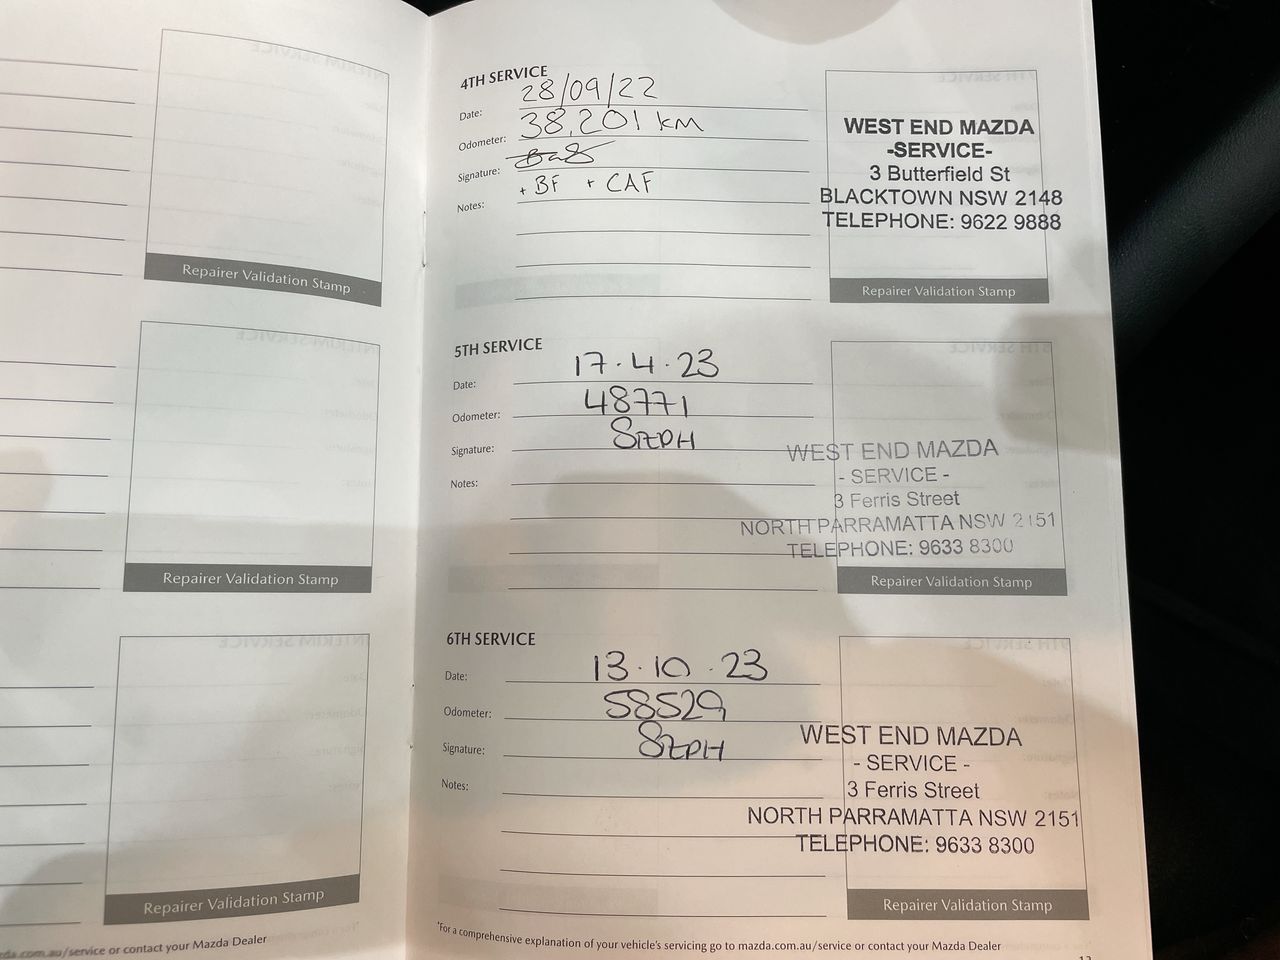 4TH SERVICE
Date: 28/09/22
Odometer: 38,201 km
Signature:
Notes: + BF + CAF
WEST END MAZDA
-SERVICE-
3 Butterfield St
BLACKTOWN NSW 2148
TELEPHONE: 9622 9888
Repairer Validation Stamp
5TH SERVICE
Date: 17.4.23
Odometer: 48771
Signature:
Notes:
WEST END MAZDA
- SERVICE -
3 Ferris Street
NORTH PARRAMATTA NSW 2151
TELEPHONE: 9633 8300
Repairer Validation Stamp
6TH SERVICE
Date: 13.10.23
Odometer: 58529
Signature:
Notes:
WEST END MAZDA
- SERVICE -
3 Ferris Street
NORTH PARRAMATTA NSW 2151
TELEPHONE: 9633 8300
Repairer Validation Stamp
*For a comprehensive explanation of your vehicle's servicing go to mazda.com.au/service or contact your Mazda Dealer
Repairer Validation Stamp
Repairer Validation Stamp
Repairer Validation Stamp
zda.com.au/service or contact your Mazda Dealer